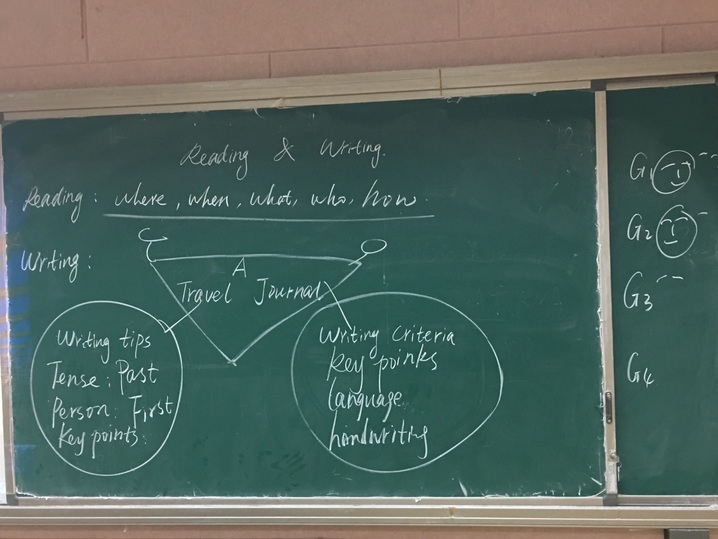 Reading & Writing.
Reading: where, when, what, who, how.
Writing:
A
Travel Journal
Writing tips
Tense: Past
Person: First
Key points:
Writing Criteria
key points
language
handwriting
G1
G2
G3
G4